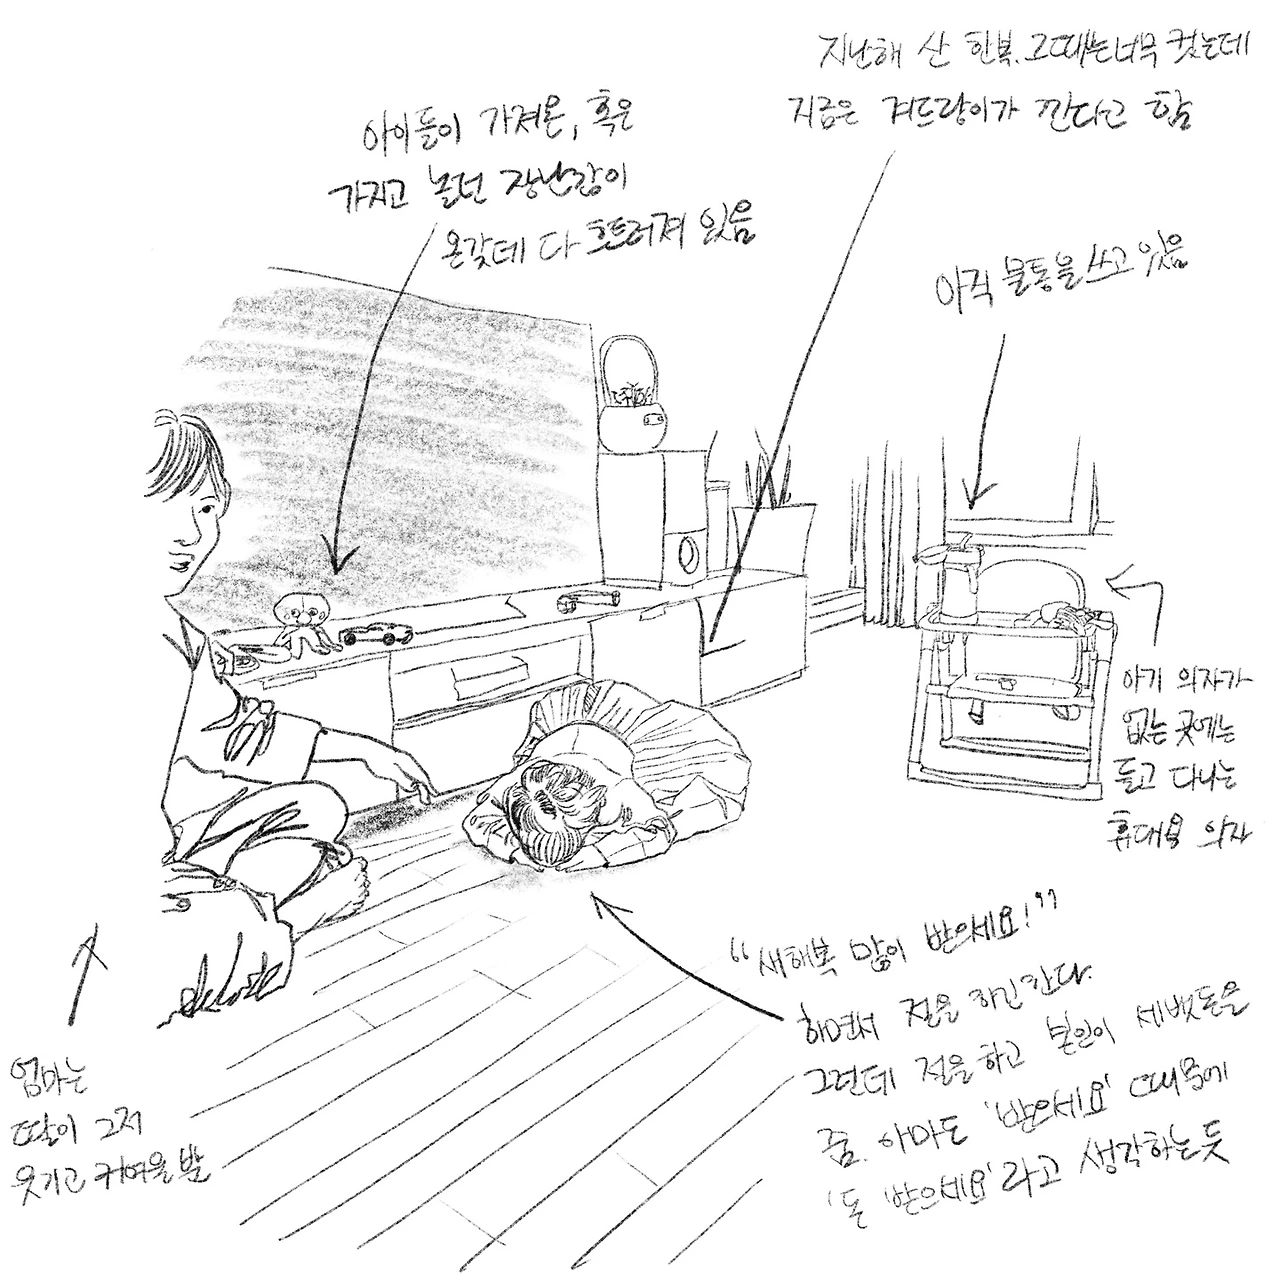 지난해 산 한복. 그때는 너무 컸는데
지금은 겨드랑이가 낀다고 함
아이들이 가져온, 혹은
가지고 놀던 장난감이
온갖데 다 흐트러져 있음
아직 물통을 쓰고 있음
아기 의자가
없는 곳에는
들고 다니는
휴대용 의자
“새해복 많이 받으세요!”
하면서 절을 하긴 한다.
그런데 절을 하고 본인이 세뱃돈을
줌. 아마도 '받으세요' 때문에
'돈 받으세요'라고 생각하는 듯
엄마는
딸이 그저
웃기고 귀여울 뿐